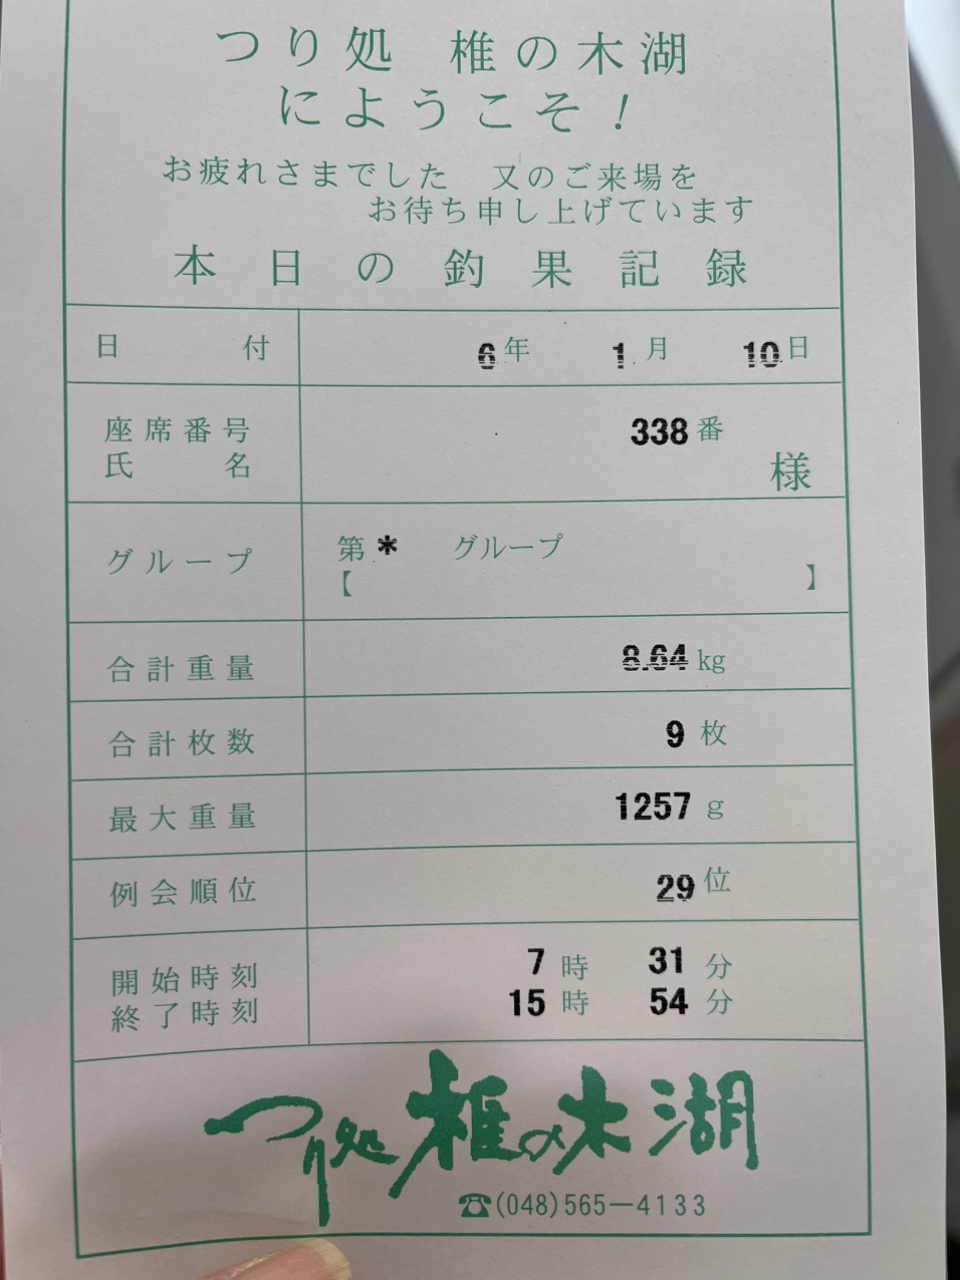 つり処 椎の木湖
にようこそ！
お疲れさまでした 又のご来場を
お待ち申し上げています
本日の釣果記録
日付 6年 1月 10日
座席番号 338番
氏名 様
グループ 第* グループ
【 】
合計重量 8.64 kg
合計枚数 9 枚
最大重量 1257 g
例会順位 29位
開始時刻 7時 31分
終了時刻 15時 54分
つり処 椎の木湖
☎(048)565-4133